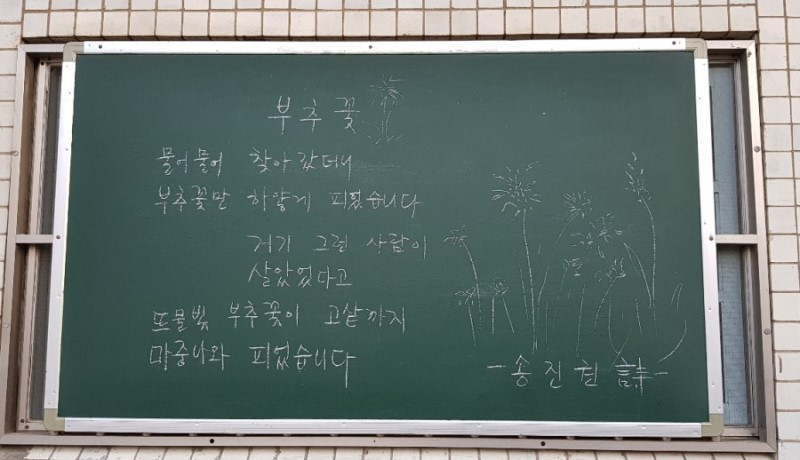 부추꽃
물어물어 찾아갔더니
부추꽃만 하얗게 피었습니다
거기 그런 사람이
살았었다고
뜨물빛 부추꽃이 고샅까지
마중나와 피었습니다
-송진권 詩-